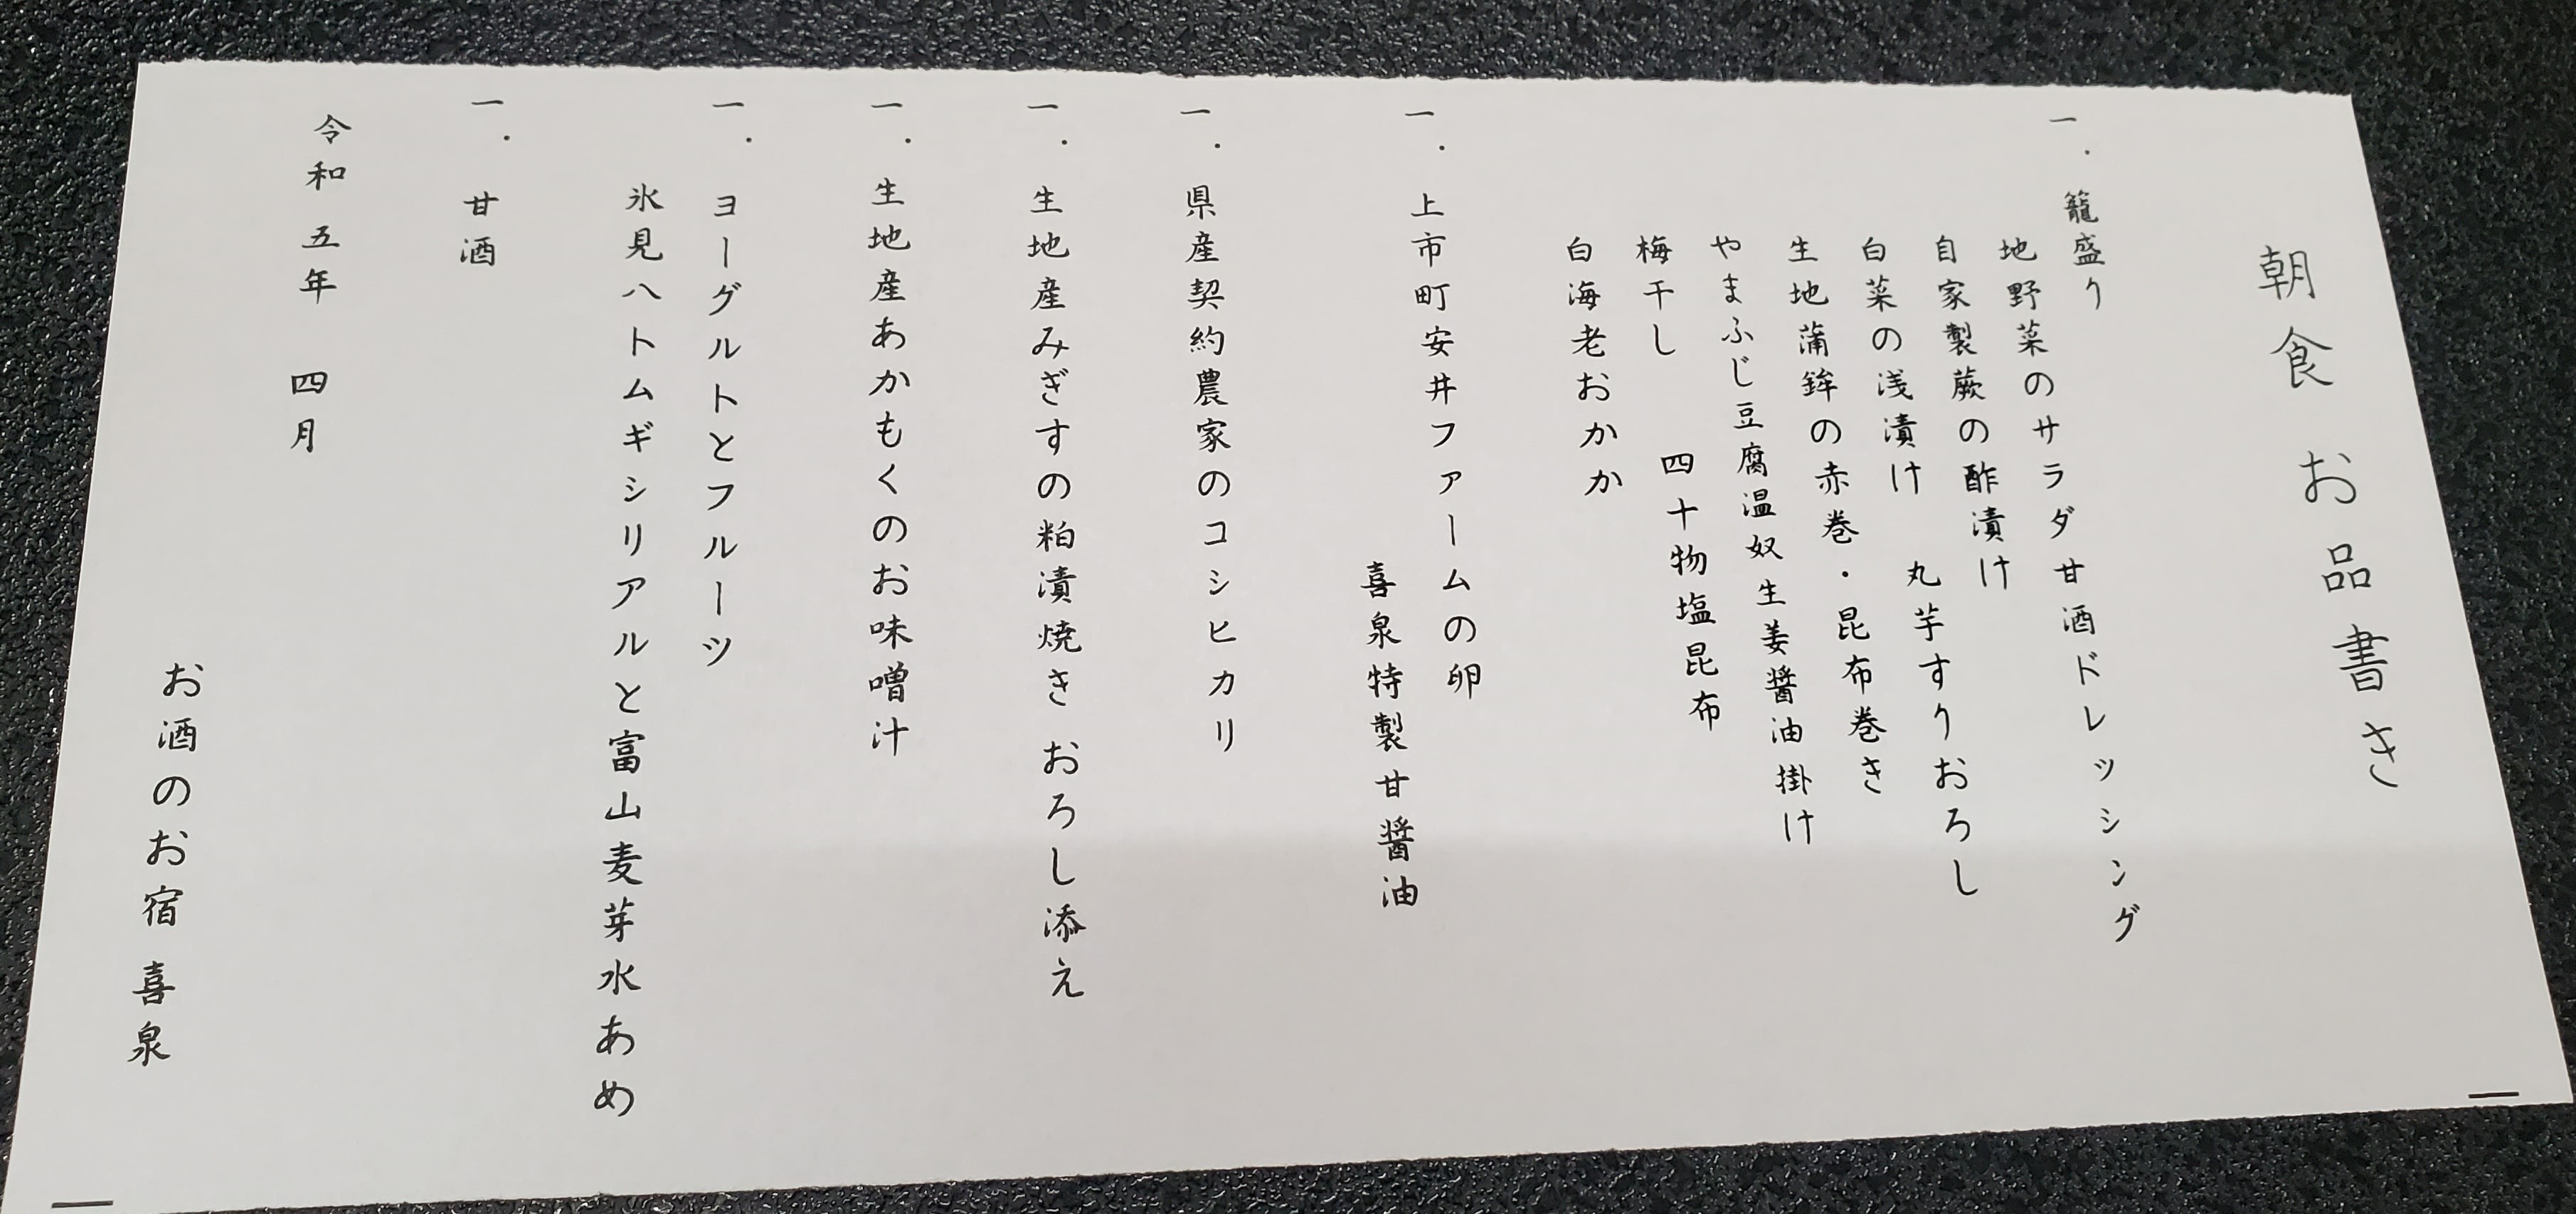 朝食 お品書き
一．籠盛り
地野菜のサラダ甘酒ドレッシング
自家製蕨の酢漬け
白菜の浅漬け 丸芋すりおろし
生地蒲鉾の赤巻・昆布巻き
やまふじ豆腐温奴生姜醤油掛け
梅干し 四十物塩昆布
白海老おかか
一．上市町安井ファームの卵
喜泉特製甘醤油
一．県産契約農家のコシヒカリ
一．生地産みぎすの粕漬焼き おろし添え
一．生地産あかもくのお味噌汁
一．ヨーグルトとフルーツ
氷見ハトムギシリアルと富山麦芽水あめ
一．甘酒
令和 五年 四月
お酒のお宿 喜泉